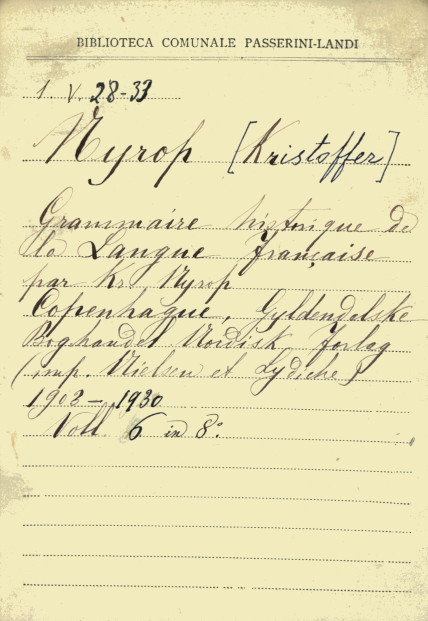 BIBLIOTECA COMUNALE PASSERINI-LANDI
1. V. 28-33
Nyrop [Kristoffer]
Grammaire historique de
la Langue Française
par Kr. Nyrop
Copenhague, Gyldendalske
Boghandel Nordisk Forlag
(imp. Nielsen et Lydiche)
1903-1930
Voll. 6 in 8°.